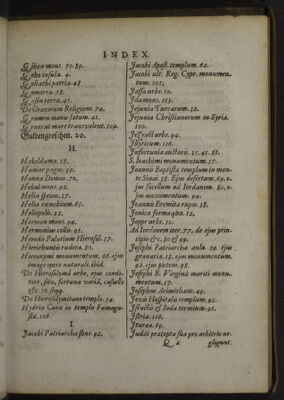 INDEX.
Gihon mons. 50. 89.
Goho insula. 4.
Goliathi patria. 48
Gomorra. 78.
Gosen terra. 45.
De Græcorum Religione. 74.
Gramen manu satum. 41.
Grues ut mare transvolent. 109.
Guldengroschen. 20.
H.
Hakeldama. 58.
Hamar pagus. 95.
Hannæ Domus. 70.
Hebal mons. 92.
Helia specus. 57.
Heliæ cœnobium. 65.
Heliopolis. 22.
Hermon mons. 94.
Hermonius collis. 95.
Herodis Palatium Hierosol. 57.
Hierichuntis rudera. 87.
Hieronymi monumentum. 66. ejus
imago opere naturali. ibid.
De Hierosolyma urbe, ejus condi-
tore, situ, fortuna varia, casu
&c. 50. seqq.
De Hierosolymitano templo. 54.
Hydria Cana in templo Famagu-
sta. 108.
I.
Jacobi Patriarchæ fons. 92.
Jacobi Apost. templum. 62.
Jacobi ult. Reg. Cypr. monumen-
tum. 105.
Jaffa urbs. 50.
Ida mons. 115.
Jejunia Turcarum. 32.
Jejunia Christianorum in Syria.
100.
Jezrael urbs. 94.
Illyricum. 116.
Infortunia auctoris. 35. 41. 81.
S. Joachimi monumentum. 57.
Joannis Baptistæ templum in mon-
te Sinai. 38. Ejus desertum. 69. e-
jus sacellum ad Iordanem. 80. e-
jus monumentum. 94.
Joannis Eremitæ rupes. 38.
Ionica forma quæ. 12.
Joppe urbs. 50.
Ad Iordanem iter. 77. de ejus prin-
cipio &c. 80 & 99.
Josephi Patriarchæ aula. 29. ejus
granaria. 18. ejus monumentum.
92. ejus puteus. 98.
Josephi B. Virginis mariti monu-
mentum. 57.
Josephus Arimathæus. 49.
Iovis Hospitalis templum. 92.
Israelis & Iuda terminus. 91.
Istria. 116.
Ituræa. 89.
Judæi præcepta sua pro arbitrio ne-
Q 2 gligunt.